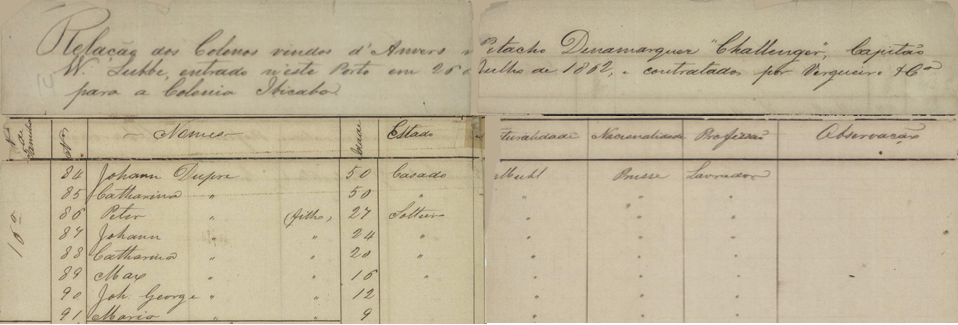 Relação dos Colonos vindos d'Anvers n Patacho Dinamarquez "Challenger", Capitão
W. Lubbe, entrado n'este Porto em 26 d Julho de 1862, e contratados por Vergueiro & Cª
para a Colonia Ibicaba
Nº de Familia Nº Nomes Idade Estado turalidade Nacionalidade Profissão Observação
84 Johann Dupre 50 Casado Muhl Prusse Lavrador
85 Catharina " 50 " " " "
16ª 86 Peter " (filho) 27 Solteiro " " "
87 Johann " " 24 " " " "
88 Catharina " " 20 " " " "
89 Max " " 16 " " " "
90 Joh. George " " 12 " " "
91 Maria " " 9 " " "